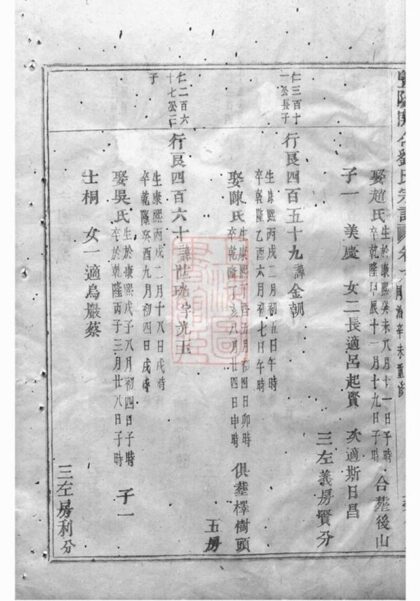 娶趙氏 生於康熙癸未八月十一日子時
卒乾隆庚辰十一月十九日子時 合葬後山
子一 美慶 女二長適呂起賢 次適斯日昌
三左義房賢分
仁三百十
一公長子
行良四百五十九諱金朝
生康熙丙戌二月初五日午時
卒乾隆乙酉六月初七日午時
娶陳氏 初四日卯時
卒乾隆丁亥八月廿四日申時 俱葬樟樹頭
五房
仁二百六
十七公二
子
行良四百六十諱 字光玉
生康熙丙戌二月十八日戌時
卒乾隆癸酉九月初四日戌時
娶吳氏 生於康熙戊子八月初四日子時
卒於乾隆丙子三月廿八日子時 子一
士桐 女一適烏巖蔡
三左房利分